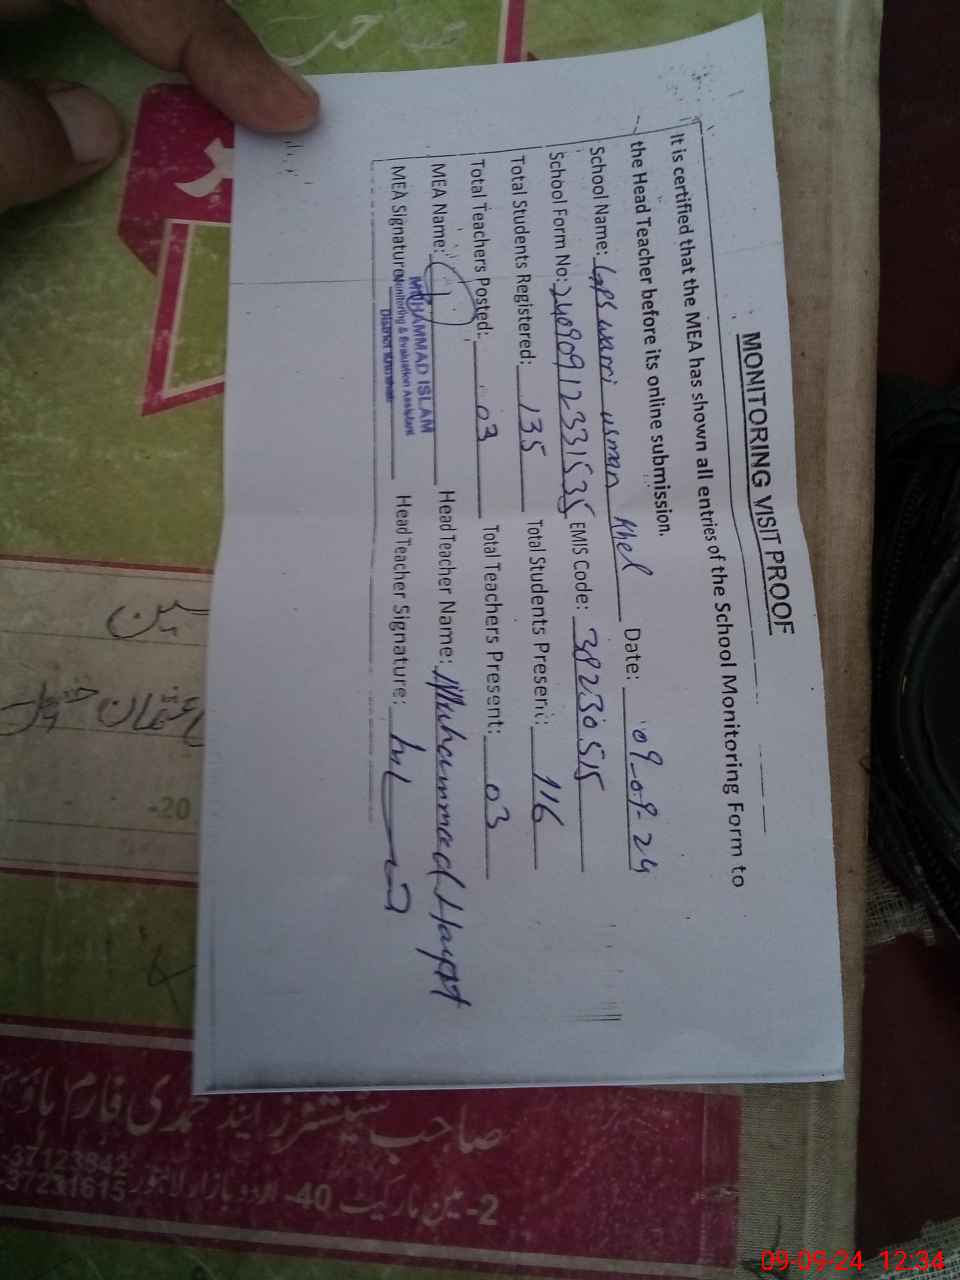 MONITORING VISIT PROOF
It is certified that the MEA has shown all entries of the School Monitoring Form to
the Head Teacher before its online submission.
School Name: GPS warri usman Khel Date: 09-09-24
School Form No: 240909123331535 EMIS Code: 38230515
Total Students Registered: 135 Total Students Present: 116
Total Teachers Posted: 03 Total Teachers Present: 03
MEA Name: MUHAMMAD ISLAM Head Teacher Name: Muhammad Hayat
Monitoring & Evaluation Assistant
MEA Signature: District Head Teacher Signature:
صاحب
عثمان خیل
-20
صاحب سٹیشنرز اینڈ فارم ہاؤس
2-مین مارکیٹ 40-اردو بازار لاہور
-37123842
-37231615
09-09-24 12:34